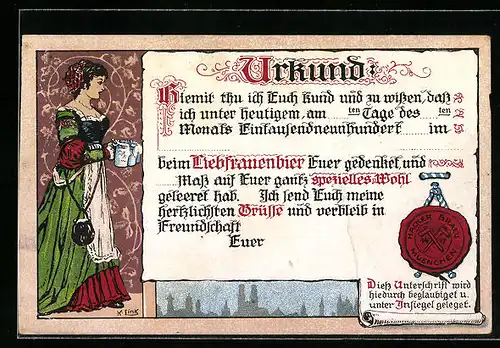 Urkund:
Hiemit thu ich Euch kund und zu wißen, daß
ich unter heutigem, am ten Tage des ten
Monats Eintausendneunhundert im
beim Liebfrauenbier Euer gedenket und
Maß auf Euer gantz spezielles Wohl
geleeret hab. Ich send Euch meine
hertzlichsten Grüsse und verbleib in
Freundschaft
Euer
Dieß Unterschrift wird
hiedurch beglaubiget u.
unter Insiegel geleget.
K. Link
MÜNCHEN